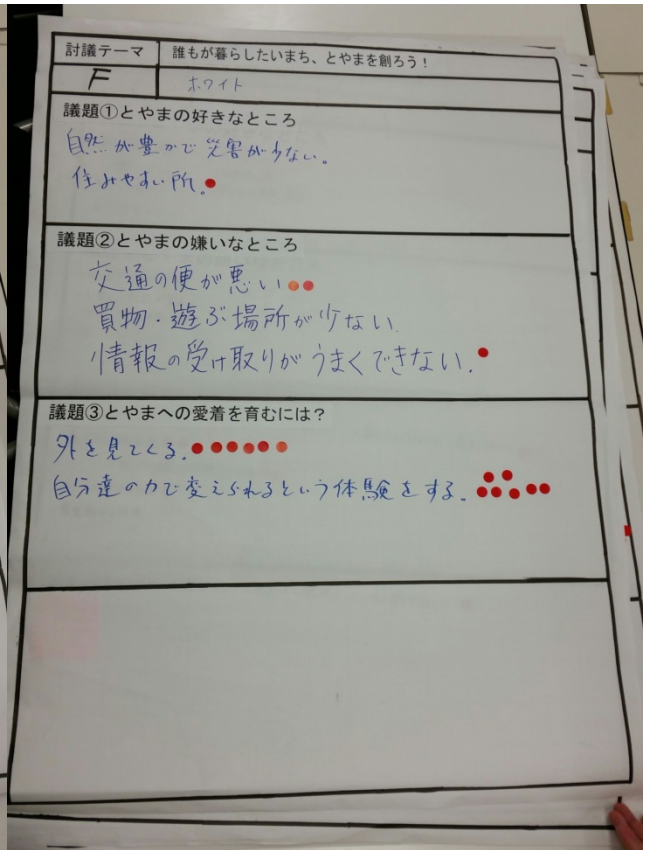 討議テーマ 誰もが暮らしたいまち、とやまを創ろう！
F ホワイト
議題①とやまの好きなところ
自然が豊かで災害が少ない。
住みやすい所。
議題②とやまの嫌いなところ
交通の便が悪い
買物・遊ぶ場所が少ない.
情報の受け取りがうまくできない.
議題③とやまへの愛着を育むには？
外を見てくる.
自分達の力で変えられるという体験をする.